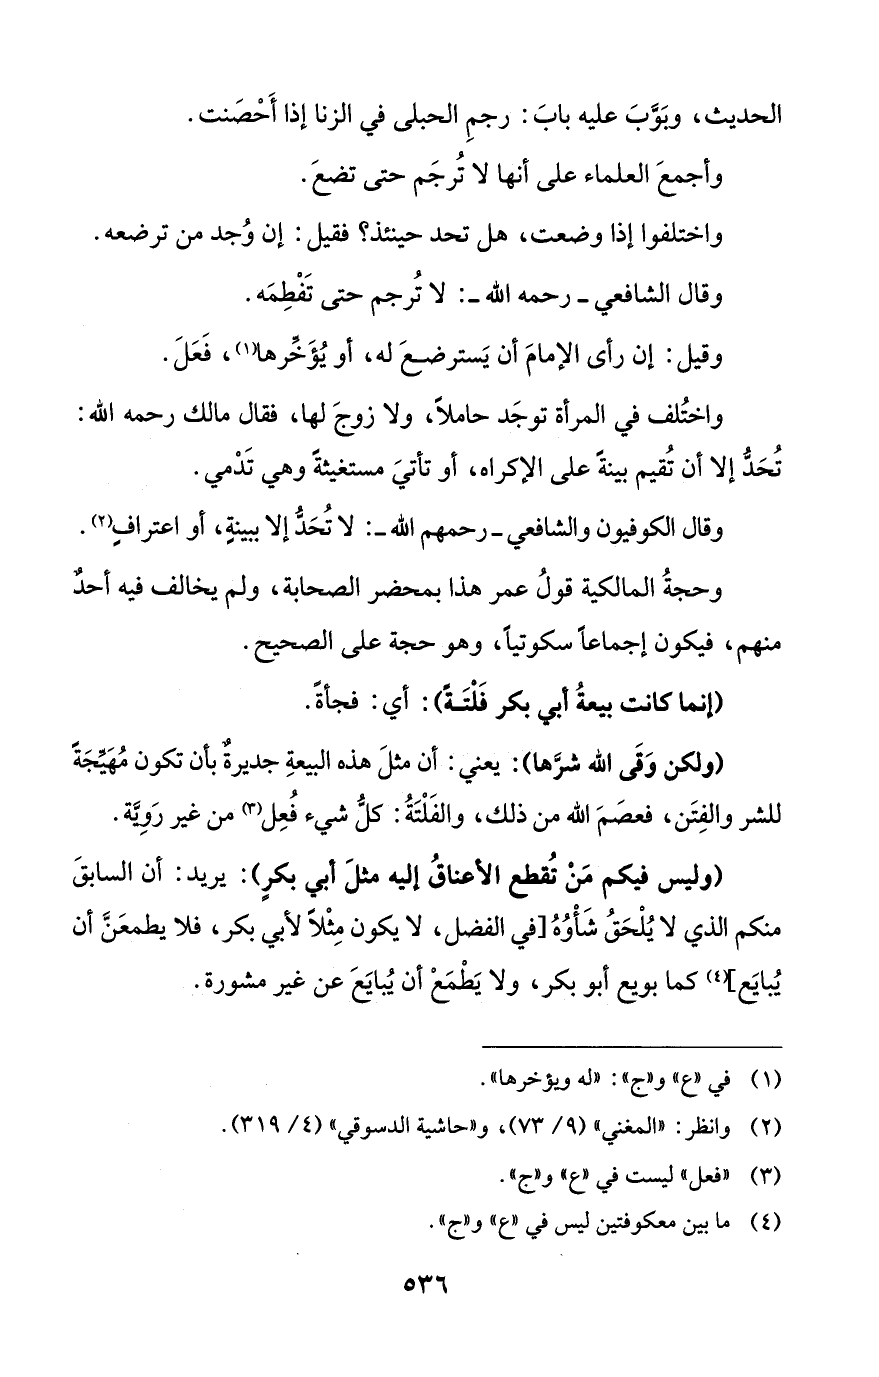 الحديث، وبَوَّبَ عليه بابَ: رجمِ الحبلى في الزنا إذا أَحْصَنت.
وأجمعَ العلماء على أنها لا تُرجَم حتى تضعَ.
واختلفوا إذا وضعت، هل تحد حينئذ؟ فقيل: إن وُجد من ترضعه.
وقال الشافعي ـ رحمه الله ـ: لا تُرجم حتى تَفْطِمَه.
وقيل: إن رأى الإمامَ أن يَسترضـعَ له، أو يُؤَخِّرها(١)، فَعَلَ.
واختُلف في المرأة توجَد حاملاً، ولا زوجَ لها، فقال مالك رحمه الله:
تُحَدُّ إلا أن تُقيم بينةً على الإكراه، أو تأتيَ مستغيثةً وهي تَدْمي.
وقال الكوفيون والشافعي ـ رحمهم الله ـ: لا تُحَدُّ إلا ببينةٍ، أو اعترافٍ(٢).
وحجةُ المالكية قولُ عمر هذا بمحضر الصحابة، ولم يخالف فيه أحدٌ
منهم، فيكون إجماعاً سكوتياً، وهو حجة على الصحيح.
(إنما كانت بيعةُ أبي بكر فَلْتَـةً): أي: فجأةً.
(ولكن وَقَى الله شرَّها): يعني: أن مثلَ هذه البيعةِ جديرةٌ بأن تكون مُهَيِّجَةً
للشر والفِتَن، فعصَمَ الله من ذلك، والفَلْتَةُ: كلُّ شيء فُعِل(٣) من غير رَوِيَّة.
(وليس فيكم مَنْ تُقطع الأعناقُ إليه مثلَ أبي بكرٍ): يريد: أن السابقَ
منكم الذي لا يُلْحَقُ شَأْوُهُ [في الفضل، لا يكون مِثْلاً لأبي بكر، فلا يطمعَنَّ أن
يُبايَع](٤) كما بويع أبو بكر، ولا يَطْمَعْ أن يُبايَعَ عن غير مشورة.
(١) في «ع» و«ج»: «له ويؤخرها».
(٢) وانظر: «المغني» (٩/ ٧٣)، و«حاشية الدسوقي» (٤/ ٣١٩).
(٣) «فعل» ليست في «ع» و«ج».
(٤) ما بين معكوفتين ليس في «ع» و«ج».
٥٣٦